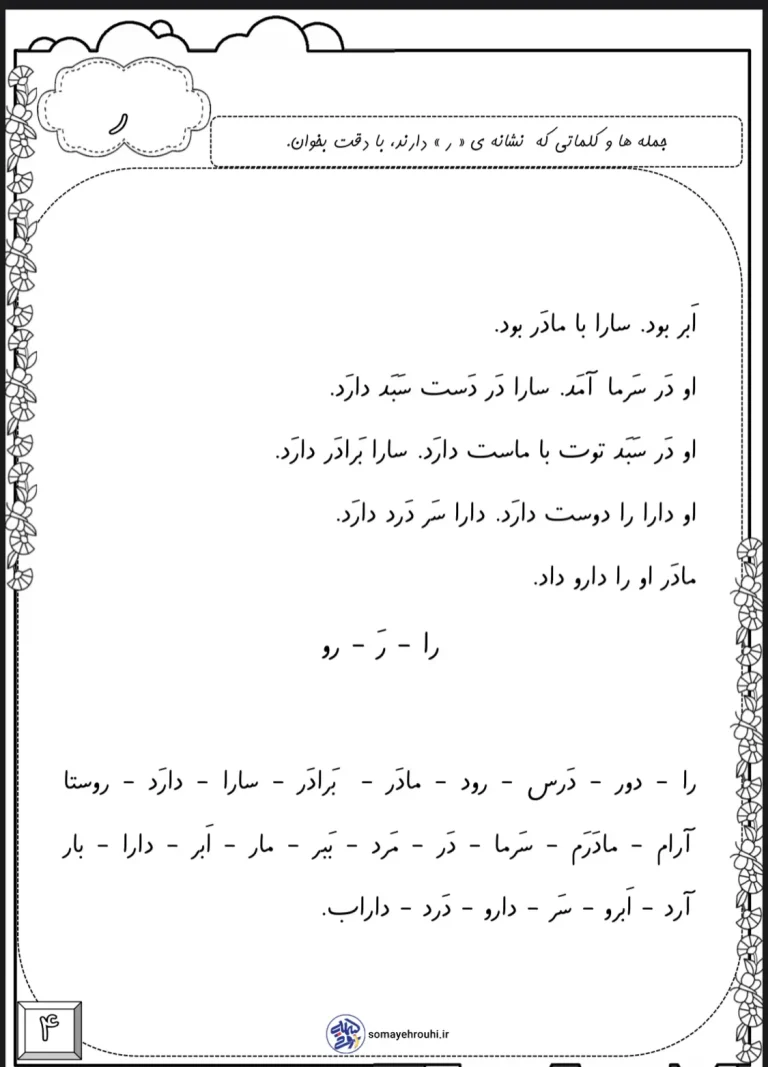 ر
جمله ها و کلماتی که نشانه ی « ر » دارند، با دقت بخوان.
اَبر بود. سارا با مادَر بود.
او دَر سَرما آمَد. سارا دَر دَست سَبَد دارَد.
او دَر سَبَد توت با ماست دارَد. سارا بَرادَر دارَد.
او دارا را دوست دارَد. دارا سَر دَرد دارَد.
مادَر او را دارو داد.
را - رَ - رو
را - دور - دَرس - رود - مادَر - بَرادَر - سارا - دارَد - روستا
آرام - مادَرَم - سَرما - دَر - مَرد - بَبر - مار - اَبر - دارا - بار
آرد - اَبرو - سَر - دارو - دَرد - داراب.
۴
somayehrouhi.ir